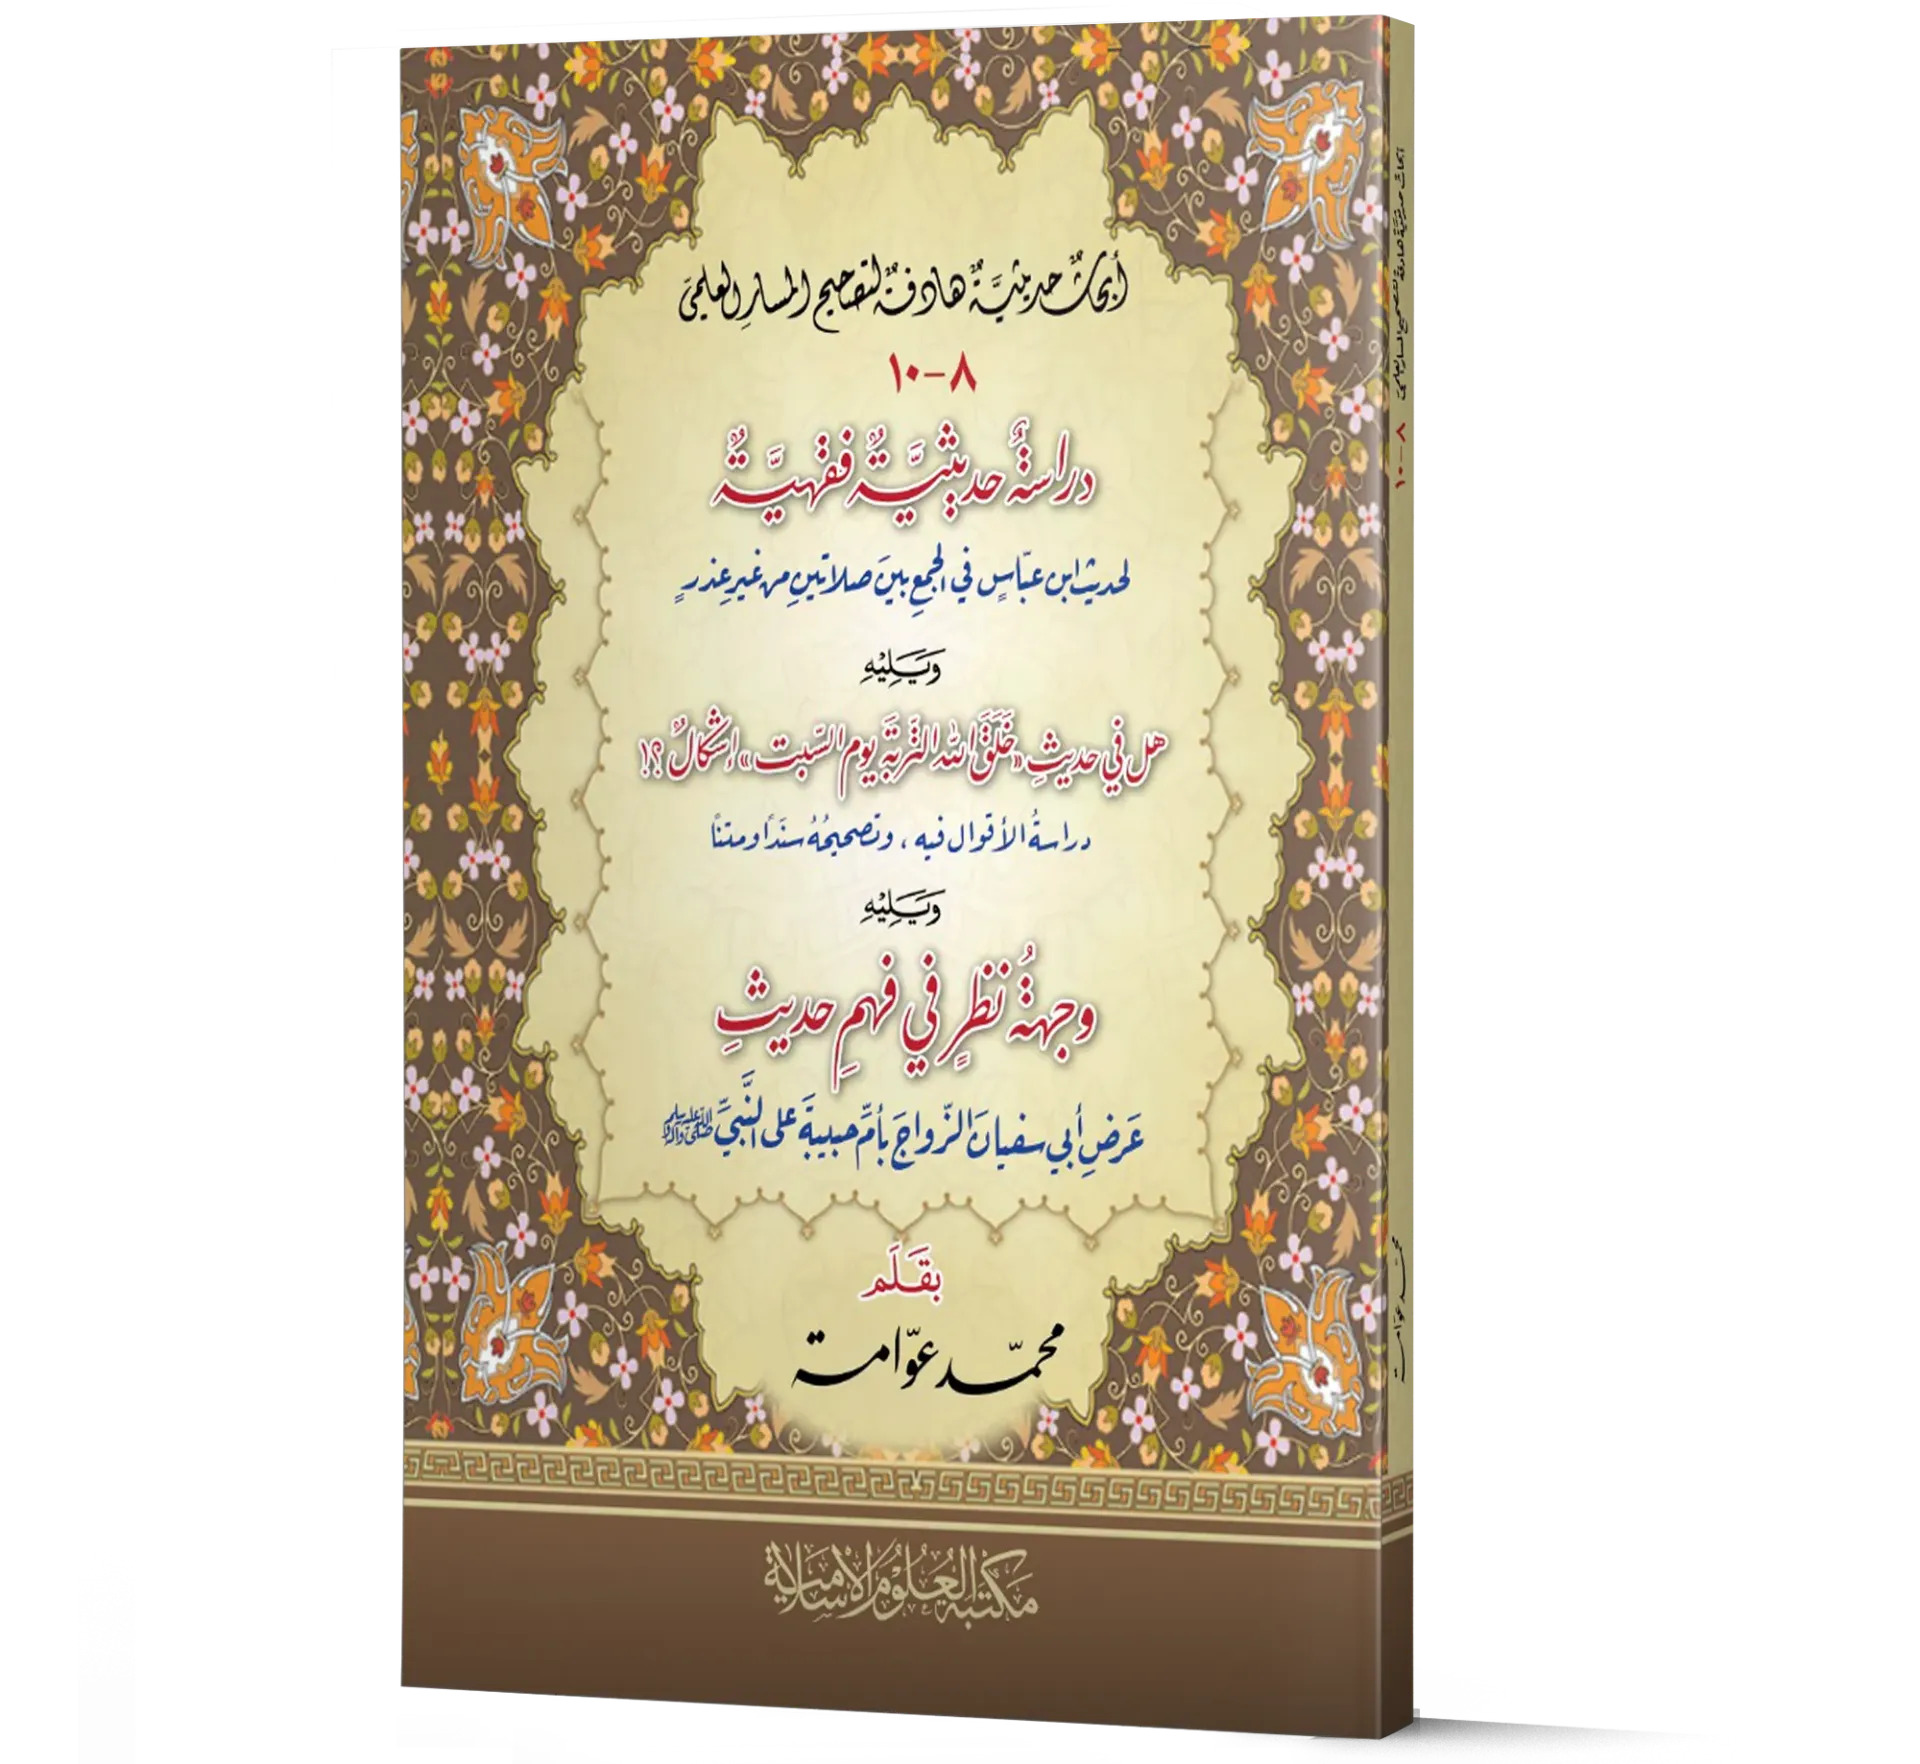 أبحاثٌ حديثيَّةٌ هادفةٌ لتصحيح المسارِ العلميّ
٨-١٠
دراسةٌ حديثيَّةٌ فقهيَّةٌ
لحديث ابن عبّاسٍ في الجمعِ بينَ صلاتينِ من غيرِ عذرٍ
وَيَـلِيْهِ
هل في حديثِ «خَلَقَ الله التربَةَ يوم السّبت» إشكالٌ؟!
دراسةُ الأقوال فيه، وتصحيحُهُ سنَداً ومتناً
وَيَـلِيْهِ
وجهةُ نظرٍ في فهمِ حديثِ
عَرضِ أبي سفيانَ الزّواجَ بأمِّ حبيبةَ على النَّبيِّ ﷺ
بقَـلَم
محمّد عوّامة
مكتبة العُلُوم الإسلامية
أبحاثٌ حديثيَّةٌ هادفةٌ لتصحيح المسار العلميّ
٨-١٠
محمّد عوّامة